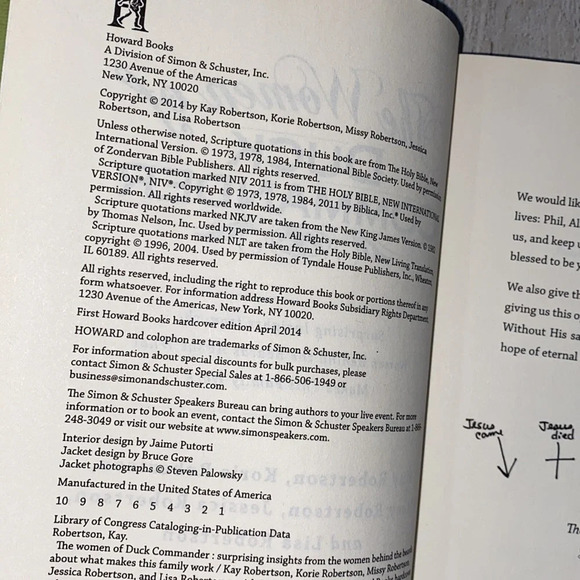 Howard Books
A Division of Simon & Schuster, Inc.
1230 Avenue of the Americas
New York, NY 10020
Copyright © 2014 by Kay Robertson, Korie Robertson, Missy Robertson, Jessica
Robertson, and Lisa Robertson
Unless otherwise noted, Scripture quotations in this book are from The Holy Bible, New
International Version. © 1973, 1978, 1984, International Bible Society. Used by permission
of Zondervan Bible Publishers. All rights reserved.
Scripture quotation marked NIV 2011 is from THE HOLY BIBLE, NEW INTERNATIONAL
VERSION®, NIV®. Copyright © 1973, 1978, 1984, 2011 by Biblica, Inc.® Used by
permission. All rights reserved worldwide.
Scripture quotations marked NKJV are taken from the New King James Version. © 1982
by Thomas Nelson, Inc. Used by permission. All rights reserved.
Scripture quotations marked NLT are taken from the Holy Bible, New Living Translation,
copyright © 1996, 2004. Used by permission of Tyndale House Publishers, Inc., Wheaton,
IL 60189. All rights reserved.
All rights reserved, including the right to reproduce this book or portions thereof in any
form whatsoever. For information address Howard Books Subsidiary Rights Department,
1230 Avenue of the Americas, New York, NY 10020.
First Howard Books hardcover edition April 2014
HOWARD and colophon are trademarks of Simon & Schuster, Inc.
For information about special discounts for bulk purchases, please
contact Simon & Schuster Special Sales at 1-866-506-1949 or
business@simonandschuster.com.
The Simon & Schuster Speakers Bureau can bring authors to your live event. For more
information or to book an event, contact the Simon & Schuster Speakers Bureau at 1-866-
248-3049 or visit our website at www.simonspeakers.com.
Interior design by Jaime Putorti
Jacket design by Bruce Gore
Jacket photographs © Steven Palowsky
Manufactured in the United States of America
10 9 8 7 6 5 4 3 2 1
Library of Congress Cataloging-in-Publication Data
Robertson, Kay.
The women of Duck Commander : surprising insights from the women behind the beards
about what makes this family work / Kay Robertson, Korie Robertson, Missy Robertson,
Jessica Robertson, and Lisa
We would lik
lives: Phil, Al
us, and keep
blessed to be y
We also give th
giving us this o
Without His sa
hope of eternal
Jesus came
Jesus died
Th